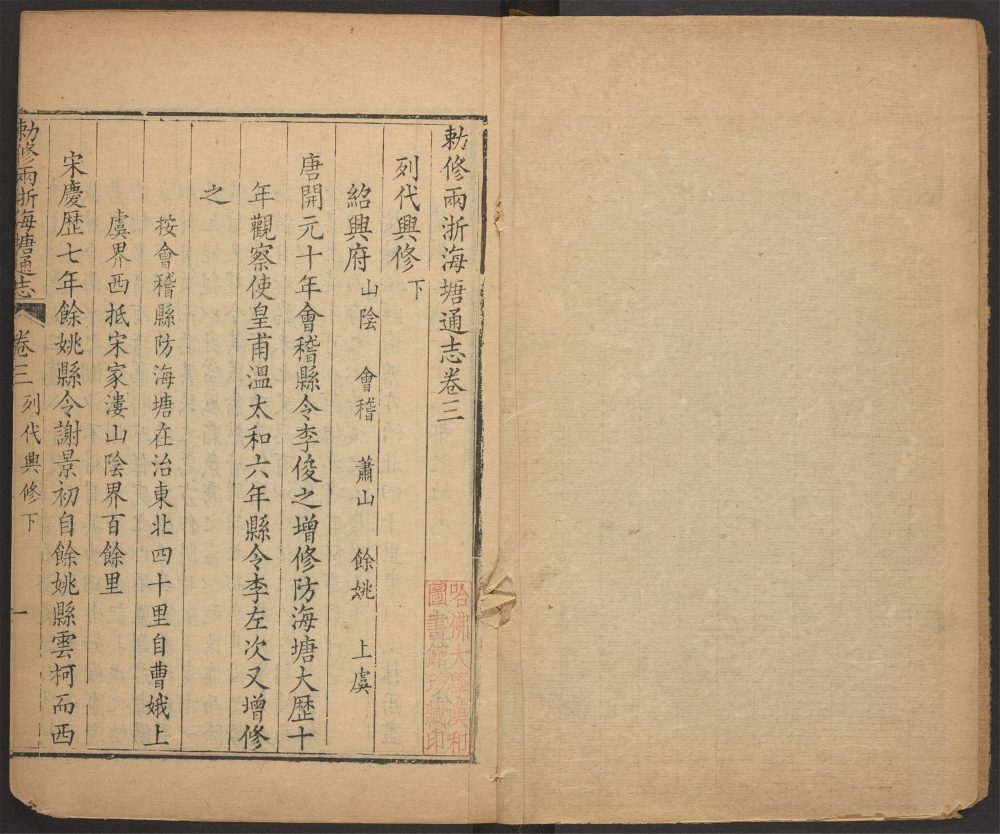 勅修兩浙海塘通志卷三
列代興修下
紹興府 山陰 會稽 蕭山 餘姚 上虞
唐開元十年會稽縣令李俊之增修防海塘大歷十
年觀察使皇甫溫太和六年縣令李左次又增修
之
按會稽縣防海塘在治東北四十里自曹娥上
虞界西抵宋家漊山陰界百餘里
宋慶歷七年餘姚縣令謝景初自餘姚縣雲柯而西
勅修兩浙海塘通志 卷三 列代興修下 一
哈佛大學漢和
圖書館珍藏印